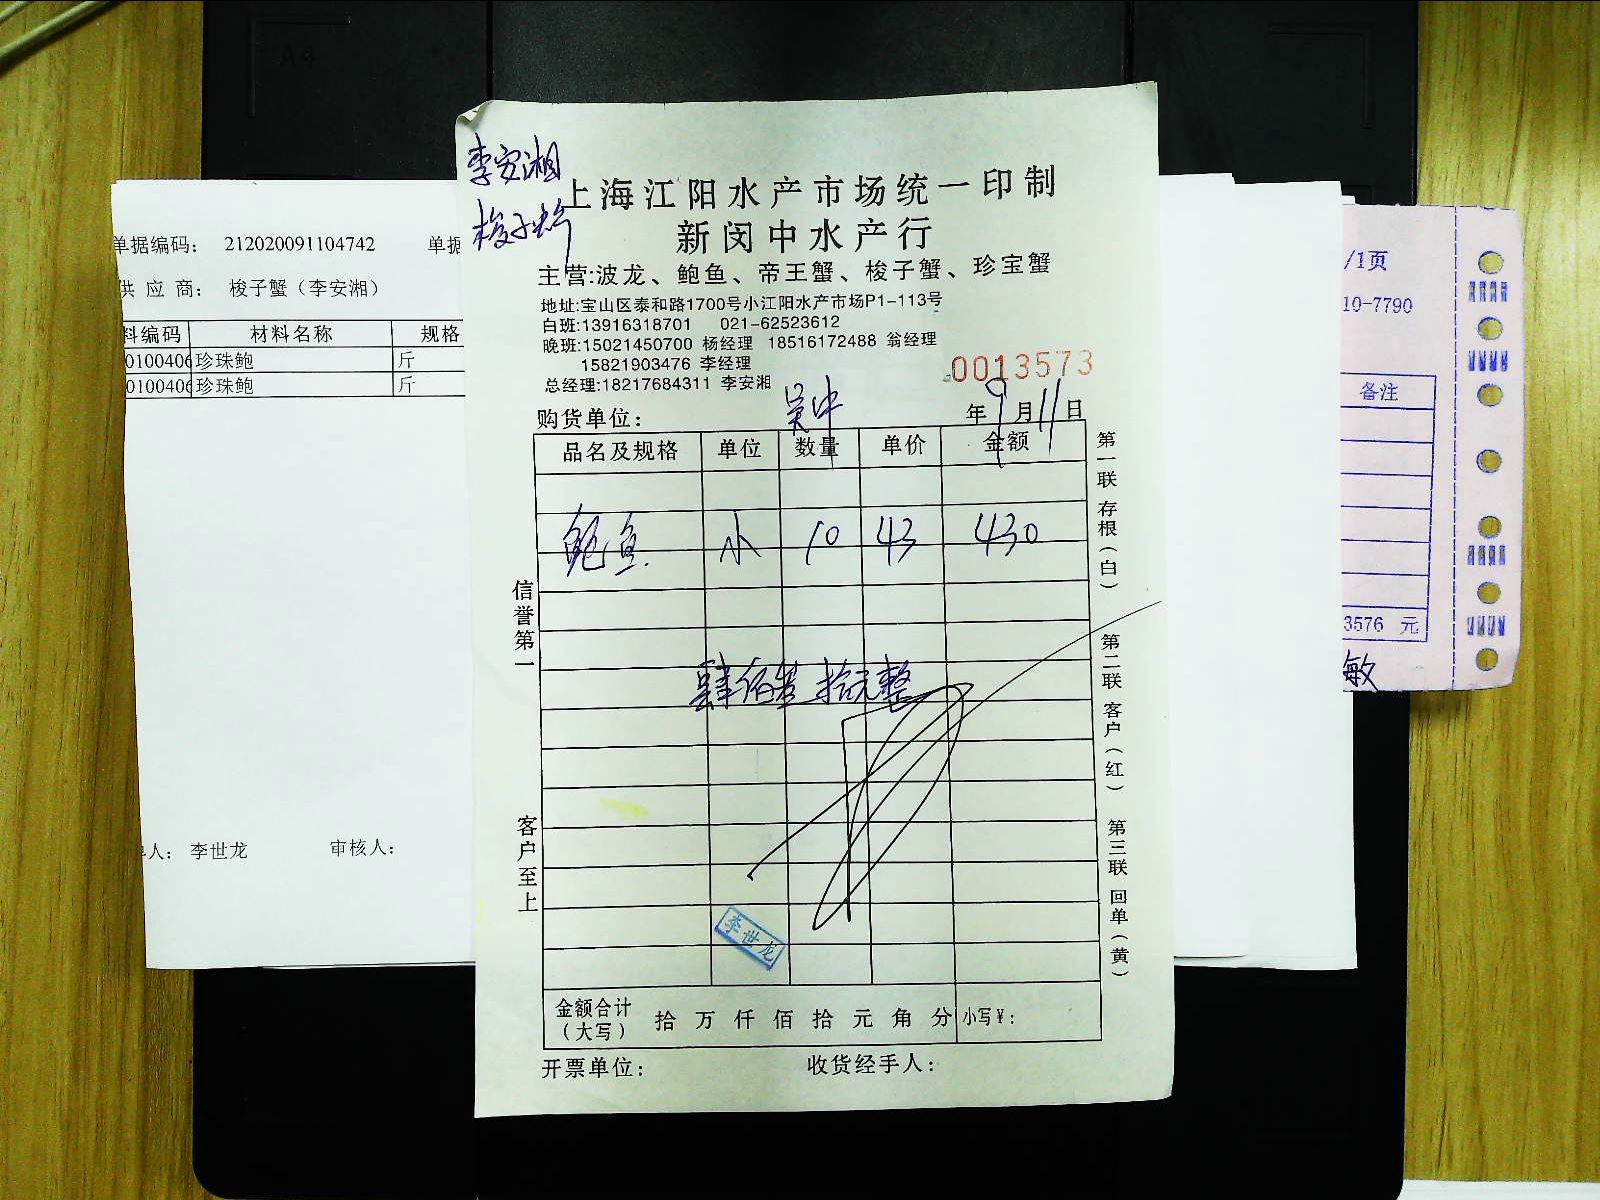 单据编码： 212020091104742 单据
供 应 商： 梭子蟹（李安湘）
料编码 材料名称 规格
0100406 珍珠鲍 斤
0100406 珍珠鲍 斤
人： 李世龙 审核人：
李安湘
梭子蟹
上海江阳水产市场统一印制
新闵中水产行
主营:波龙、鲍鱼、帝王蟹、梭子蟹、珍宝蟹
地址:宝山区泰和路1700号小江阳水产市场P1-113号
白班:13916318701 021-62523612
晚班:15021450700 杨经理 18516172488 翁经理
15821903476 李经理
总经理:18217684311 李安湘
0013573
购货单位： 吴中 年 9 月 11 日
品名及规格 单位 数量 单价 金额
鲍鱼 小 10 43 430
肆佰叁拾元整
李世龙
金额合计（大写） 拾 万 仟 佰 拾 元 角 分 小写¥：
开票单位： 收货经手人：
信誉第一
客户至上
第一联 存根（白）
第二联 客户（红）
第三联 回单（黄）
/1页
10-7790
备注
3576 元
敏